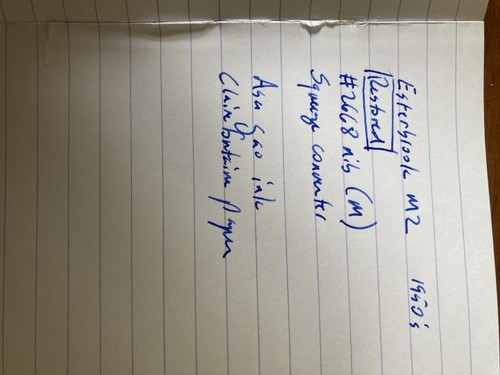 Esterbrook M2 1950's
Restored
#2668 nib (M)
Squeeze converter
Asa Gao ink
Clairefontaine paper